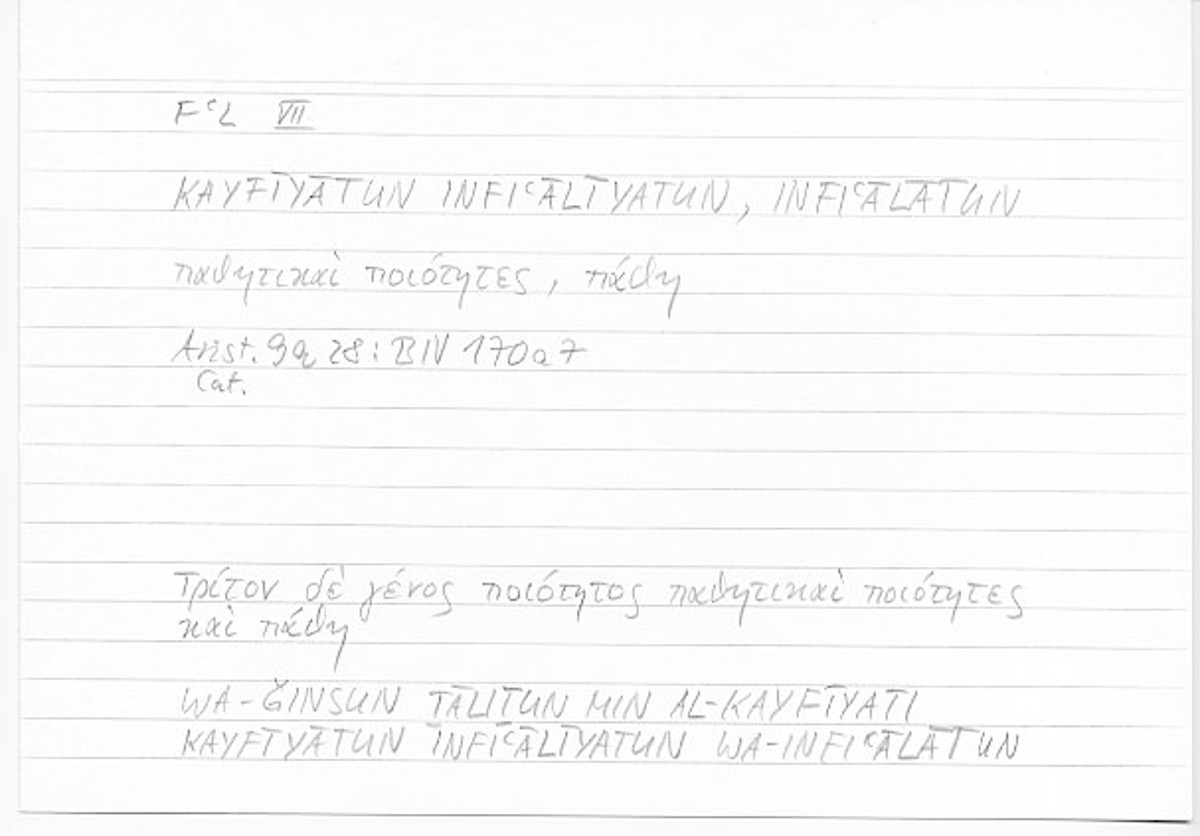 FʿL VII
KAYFĪYĀTUN INFIʿĀLĪYATUN, INFIʿĀLĀTUN
παθητικαὶ ποιότητες, πάθη
Arist. 9a28: BIV 170a7
Cat.
Τρίτον δὲ γένος ποιότητος παθητικαὶ ποιότητες
καὶ πάθη
WA-ǦINSUN TĀLITUN MIN AL-KAYFĪYATI
KAYFĪYĀTUN INFIʿĀLĪYATUN WA-INFIʿĀLĀTUN